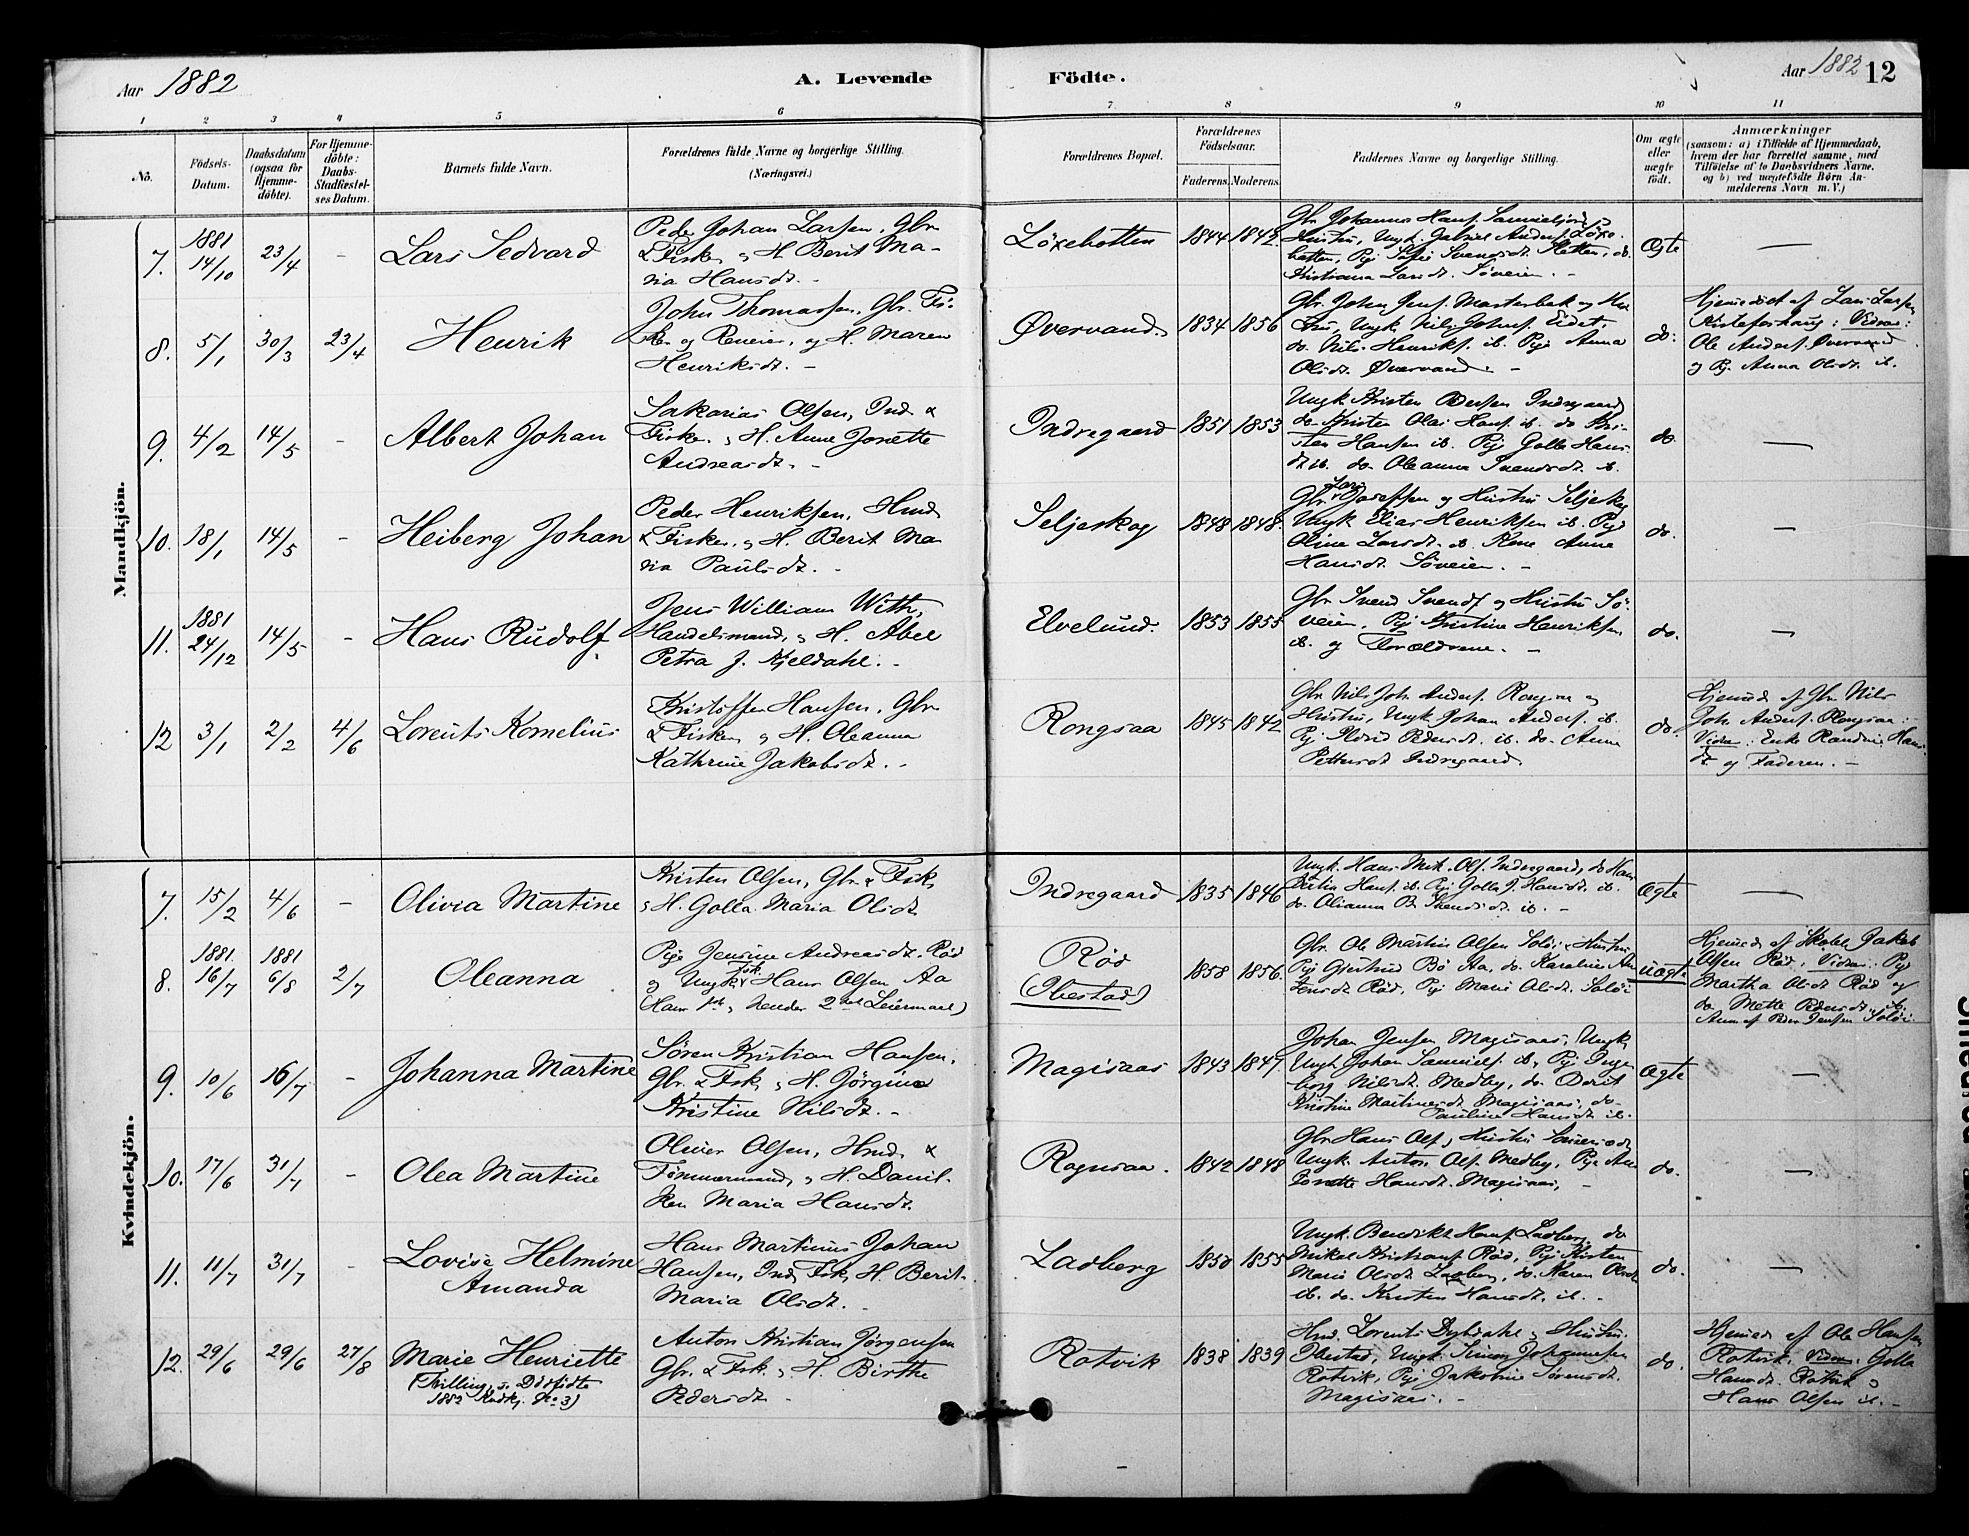 Aar 1882
A. Levende
Födte.
Aar 1882 12
1 2 3 4 5 6 7 8 9 10 11
No.
Födsels-
Datum.
Daabsdatum
(ogsaa for
Hjemme-
döbte).
For Hjemme-
döbte:
Daabs-
Stadfæstel-
ses Datum.
Barnets fulde Navn.
Forældrenes fulde Navne og borgerlige Stilling.
(Næringsvei.)
Forældrenes Bopæl.
Forældrenes
Födselsaar.
Faderens. Moderens.
Faddernes Navne og borgerlige Stilling.
Om ægte
eller
uægte
födt.
Anmærkninger
(saasom: a) i Tilfælde af Hjemmedaab,
hvem der har forrettet samme, med
Tilföielse af to Daabsvidners Navne.
og b) ved uægtefödte Börn An-
melderens Navn m.V.)
Mandkjön.
7. 1881 14/10 23/4 - Lars Sedvard
Peder Johan Larsen, Gbr
& Fisker og H. Berit Ma-
ria Hansdt. -
Löxebotten 1844 1842
Gbr Johannes Hans.
Hustru, Ungk. Gabriel Anders. Löxe-
botten, Pige Svendsdt.
Kristiana Larsdt. Söveien. -
Ægte —
8. 5/1 30/3 23/4 Henrik
John Thomassen, Gbr. Fi-
sker og H. Maren
Henriksdt. -
Øvervand. 1834 1856
Gbr. Johan Jens. Masterbak og Hu-
stru, Ungk. Nils Johns. Eidet,
do. Nils Henriks. ib. Pige Anna
Olsdt. Øvervand. -
do.
Hjemdöbt af Lars Larsen
Vidner:
Ole Anders. Øvervand
og Pg. Anna Olsdt. ib.
9. 4/2 14/5 - Albert Johan
Sakarias Olsen, Ind. &
Fisker, & H. Anne Jonette
Andreasdt. -
Indregaard 1851 1853
Ungk. Kristen Pedersen Indregaard
do. Kristen Olai Hans. ib. do Kri-
sten Hansen ib. Pige Golla Hans-
dt. ib. do. Oleanna Svendsdt. ib.
do. —
10. 18/1 14/5 - Heiberg Johan
Peder Henriksen, Hmd.
& Fisker, og H. Berit Ma-
ria Paulsdt. -
Seljeskog 1848 1848.
Gbr. Lars Josefsen og Hustru Seljeskog
Ungk Elias Henriksen ib. Pige
Oline Larsdt. ib. Kone Anne
Hansdt Söveien. -
do. —
11. 1881 24/12 14/5 - Hans Rudolf.
Jens William With,
Handelsmand, og H. Abel
Petra J. Kjeldahl. -
Elvelund. 1853 1855
Gbr. Svend Svends. og Hustru Sö-
veien, Pige Kristine Henriksen
ib. og Forældrene. -
do. —
12 3/1 2/2 4/6 Lorents Kornelius
Kristoffer Hansen, Gbr
& Fisker og H. Oleanna
Kathrine Jakobsdt. -
Rongsaa 1845 1842
Gbr. Nils Joh. Anders. Rongsaa og
Hustru, Ungk. Johan Anders. ib.
Pg. Pedersdt. ib. do. Anne
Pettersdt Indregaard.
do.
Hjemd. af Gbr. Nils
Joh. Anders. Rongsaa.
Vidner: Enke Hans-
dt og Faderen. -
Kvindekjön.
7. 15/2 4/6 - Olivia Martine
Kristen Olsen, Gbr. & Fisk.
& H. Golla Maria Olsdt
Indregaard 1835 1846
Ungk. Hans Mik. Ols. Indregaard, do Hans
Hans. ib. Pige Golla J. Hansdt. ib.
do. Olianna B. Svendsdt. ib. -
Ægte —
8. 1881. 16/7 1881 6/8 2/7 Oleanna
Pige Jensine Andreasdt. Röd
og Ungk. Fisk. Hans Olsen Aa
(Hans 1ste, hendes 2det Leiermaal)
Röd
(Ibestad) 1858 1856.
Gbr. Ole Martin Olsen Solöi & Hustru
Pige Gjertrud Bö Aa, do. Karoline An-
tonsdt Röd, Pige Marie Olsdt. Solöi
uægte
Hjemd. af Jakob
Olsen Röd, Vidner: Pige
Martha Olsdt Röd og
do. Mette Pedersdt. ib.
Anm. af Peder Jensen Solöi.
9. 10/6 16/7 - Johanna Martine
Sören Kristian Hansen,
Gbr. & Fisk. & H. Jörgine
Kristine Nilsdt. -
Magisaas 1843 1847.
Johan Jensen Magisaas, Ungk.
Ungk. Johan Samuels. ib. Pige Inge-
borg Nilsdt. Medby, do. Berit
Kristine Martinusdt Magisaas, do
Pauline Hansdt ib.
Ægte —
10. 17/6 31/7 - Olea Martine
Oliver Olsen, Hmd. &
Tömmermand, og H. Danil-
ken Maria Hansdt.
Rognsaa. 1842 1848
Gbr. Hans Ols. & Hustru
Ungk. Anton Ols. Medby, Pige An-
Hansdt. Magisaas, -
do. —
11. 11/7 31/7 - Lovise Helmine
Amanda
Hans Martinus Johan
Hansen, Ind. Fisk, H. Berit
Maria Olsdt. -
Ladberg 1850 1855
Ungk. Benedikt Hans. Ladberg, do
Mikal Kristians. Röd, Pige Kirsten
Marie Olsdt. Ladberg, do. Karen Olsdt
ib. do. Kirsten Hansdt. ib. -
do. —
12. 29/6 29/6 27/8 Marie Henriette
(Tvilling, s. Dödfödte
1882 Kvdkj. No 3)
Anton Kristian Jörgensen
Gbr. & Fisk. & H. Birthe
Pedersdt. -
Rotvik 1838 1839
Hmd. Lorents Dybdahl & Hustru.
Ibestad, Ungk. Simon Johannesen
Rotvik, Pige Jakobine Sörensdt.
Magisaas. -
do.
Hjemd. af Ole Hansen
Rotvik. Vidner: Golla
Hansdt. Rotvik og
Hans Olsen ib. -